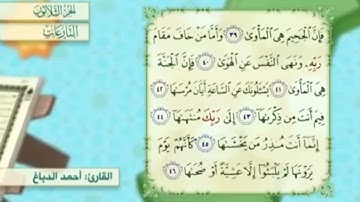 الجزء الثلاثون
النازعات
فَإِنَّ الْجَحِيمَ هِيَ الْمَأْوَىٰ ٣٩ وَأَمَّا مَنْ خَافَ مَقَامَ
رَبِّهِ وَنَهَى النَّفْسَ عَنِ الْهَوَىٰ ٤٠ فَإِنَّ الْجَنَّةَ
هِيَ الْمَأْوَىٰ ٤١ يَسْأَلُونَكَ عَنِ السَّاعَةِ أَيَّانَ مُرْسَاهَا ٤٢
فِيمَ أَنتَ مِن ذِكْرَاهَا ٤٣ إِلَىٰ رَبِّكَ مُنتَهَاهَا ٤٤
إِنَّمَا أَنتَ مُنذِرُ مَن يَخْشَاهَا ٤٥ كَأَنَّهُمْ يَوْمَ
يَرَوْنَهَا لَمْ يَلْبَثُوا إِلَّا عَشِيَّةً أَوْ ضُحَاهَا ٤٦
القارئ: أحمد الدباغ